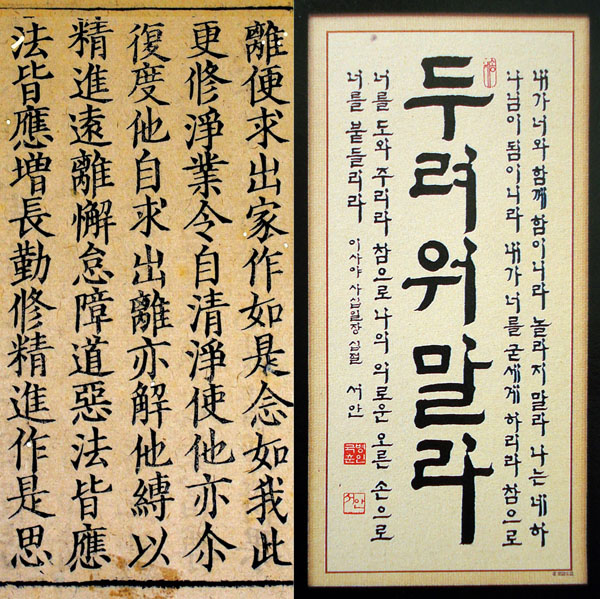 離便求出家作如是念如我此
更修淨業令自清淨使他亦尒
復度他自求出離亦解他縛以
精進遠離懈怠障道惡法皆應
法皆應增長勤修精進作是思
내가 너와 함께 함이니라 놀라지 말라 나는 네 하
나님이 됨이니라 내가 너를 굳세게 하리라 참으로
두려워 말라
너를 도와 주리라 참으로 나의 의로운 오른 손으로
너를 붙들리라 이사야 사십일장 십절 서안
서안